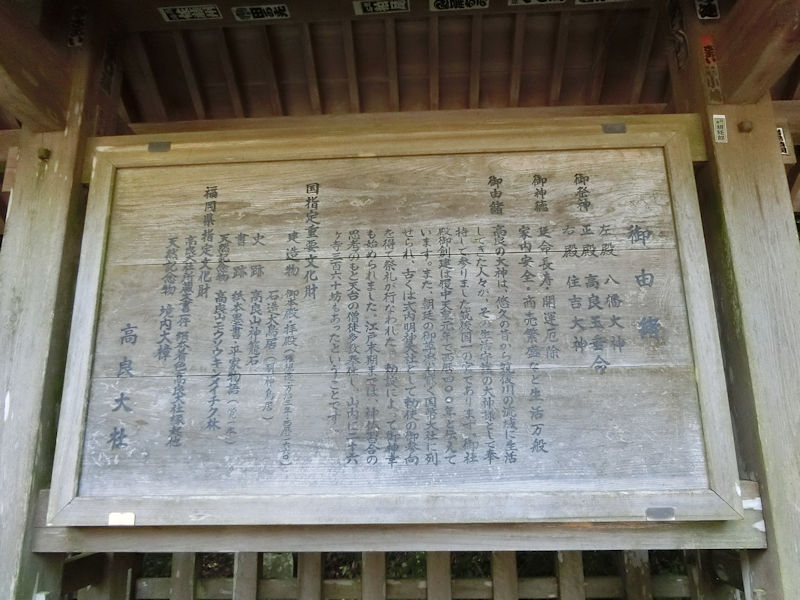 御由緒
御祭神
左殿 八幡大神
正殿 高良玉垂命
右殿 住吉大神
御神徳 延命長寿・開運厄除
家内安全・商売繁盛など生活万般
御由緒 高良の大神は、悠久の昔から筑後川の流域に生活
してきた人々が、その生活守護の大神様として奉
持して参りました筑後国一の宮であります。御社
殿御創建は履中天皇元年(西暦四〇〇年)と伝えて
います。また、朝廷の御尊崇も篤く国幣大社に列
せられ、古くは式内明神大社として勅使の御参向
を得て祭礼が行なわれた。勅裁によって御神幸
も始められました。江戸末期までは、神仏習合の
思考のもと天台の僧徒多数奉仕し、山内に二十六
ヶ寺三百六十坊もあったということです。
国指定重要文化財
建造物 御本殿・拝殿
石造大鳥居
史跡 高良山神籠石
書跡 紙本墨書 平家物語
天然記念物 高良山モウソウキンメイチク林
福岡県指定文化財
高良大社所蔵文書 絹本着色高良大社縁起 他
天然記念物 境内大樟
高良大社